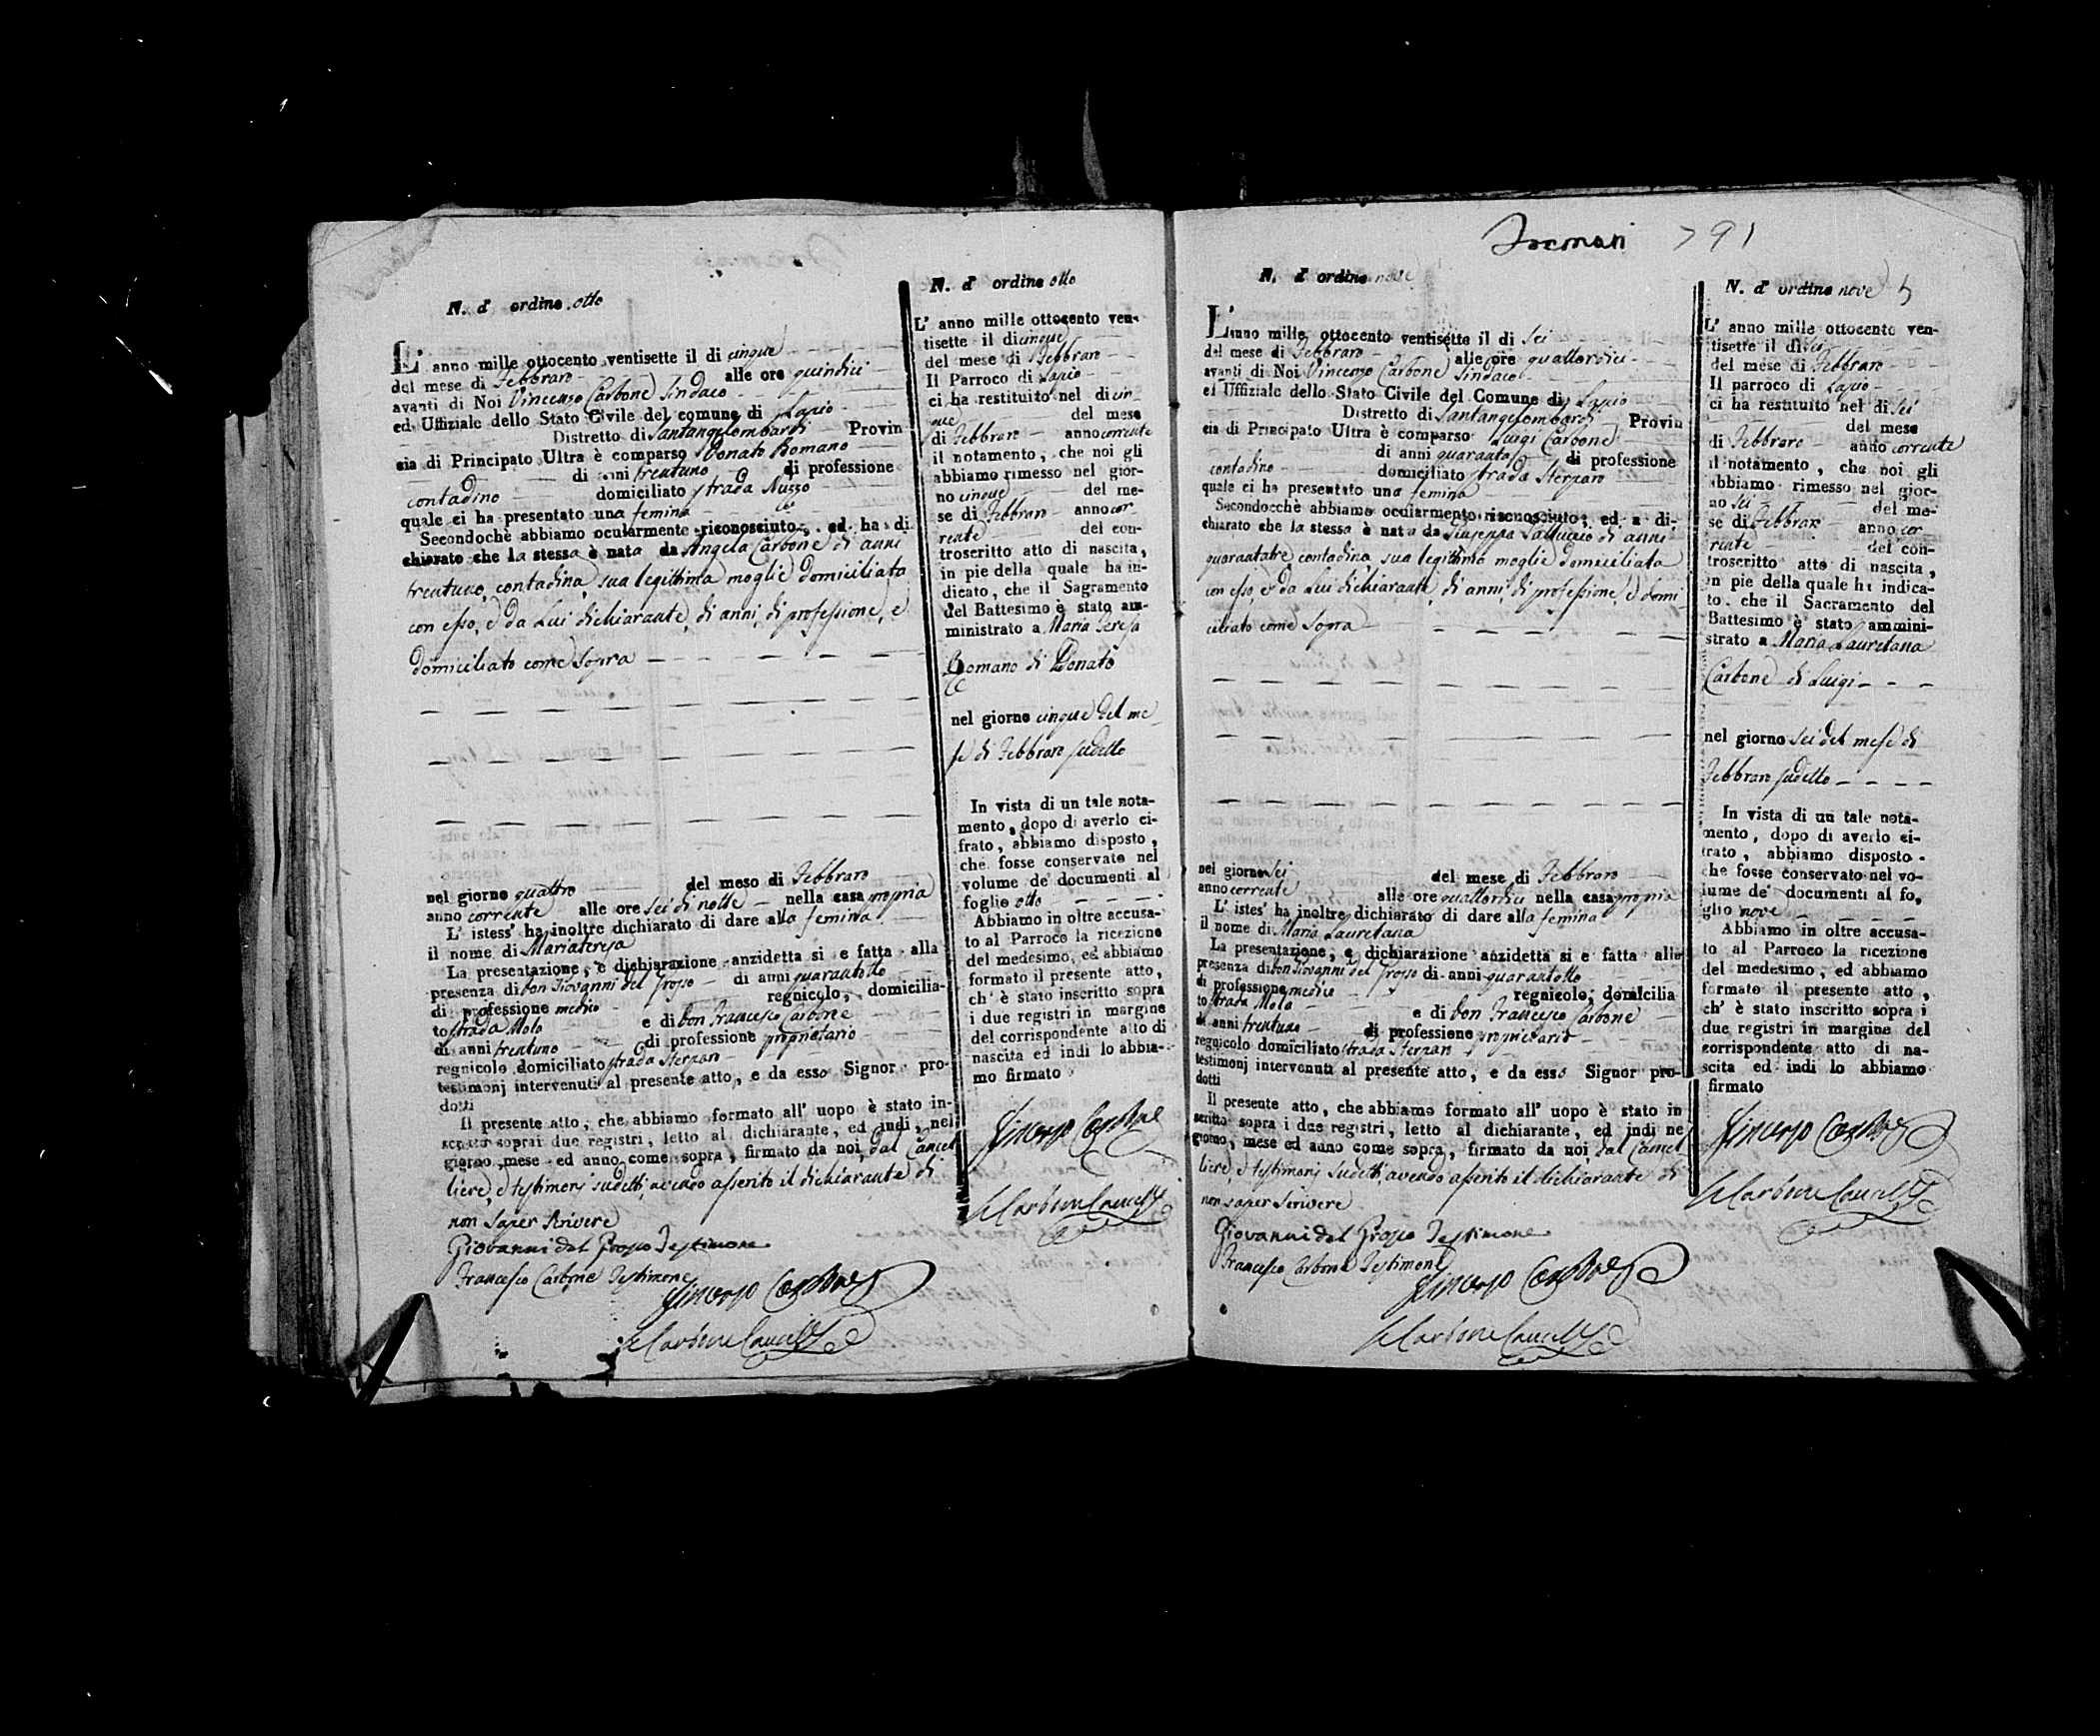 N. d' ordine otto
L' anno mille ottocento ventisette il di cinque
del mese di Febbraro alle ore quindici
avanti di Noi Vincenzo Carbone Sindaco
ed Uffiziale dello Stato Civile del comune di Lapio
Distretto di Santangelombardi Provin
cia di Principato Ultra è comparso Donato Romano
di anni trentuno di professione
contadino domiciliato strada Nuzzo
quale ci ha presentato una femina
Secondochè abbiamo ocularmente riconosciuto, ed ha di
chiarato che la stessa è nata da Angela Carbone di anni
trentuno, contadina, sua legittima moglie domiciliata
con esso, e da Lui dichiarante, di anni, di professione, e
domiciliato come sopra
nel giorno quattro del mese di Febbraro
anno corrente alle ore sei di notte nella casa propria
L' istess' ha inoltre dichiarato di dare alla femina
il nome di Mariateresa
La presentazione, e dichiarazione anzidetta si e fatta alla
presenza di Don Giovanni del Grosso di anni quarantotto
di professione medico regnicolo, domicilia-
to strada Molo e di Don Francesco Carbone
di anni trentuno di professione proprietario
regnicolo domiciliato strada Sterparo
testimonj intervenuti al presente atto, e da esso Signor pro-
dotti
Il presente atto, che abbiamo formato all' uopo è stato in-
scritto soprai due registri, letto al dichiarante, ed indi, nel
giorno, mese ed anno come sopra, firmato da noi, dal Cancel
liere, e testimonj sudetti, avendo asserito il dichiarante di
non saper scrivere
Giovanni del Grosso Testimone
Francesco Carbone Testimone
Vincenzo Carbone
Carbone Cancelle
N. d' ordine otto
L' anno mille ottocento ven-
tisette il di cinque
del mese di Febbraro
Il Parroco di Lapio
ci ha restituito nel di cin
que del mese
di Febbraro anno corrente
il notamento, che noi gli
abbiamo rimesso nel gior-
no cinque del me-
se di Febbraro anno cor
rente del con-
troscritto atto di nascita,
in pie della quale ha in-
dicato, che il Sagramento
del Battesimo è stato am-
ministrato a Maria Teresa
Romano di Donato
nel giorno cinque del me
se di Febbraro sudetto
In vista di un tale nota-
mento, dopo di averlo ci-
frato, abbiamo disposto,
che fosse conservato nel
volume de' documenti al
foglio otto
Abbiamo in oltre accusa-
to al Parroco la ricezione
del medesimo, ed abbiamo
formato il presente atto,
ch' è stato inscritto sopra
i due registri in margine
del corrispondente atto di
nascita ed indi lo abbia-
mo firmato
Vincenzo Carbone
Carbone Cancelle
791
N. d' ordine nove
L' anno mille ottocento ventisette il di sei
del mese di Febbraro alle ore quattordici
avanti di Noi Vincenzo Carbone Sindaco
ed Uffiziale dello Stato Civile del Comune di Lapio
Distretto di Santangelombardi Provin
cia di Principato Ultra è comparso Luigi Carbone
di anni quaranta di professione
contadino domiciliato strada Sterparo
quale ci ha presentato una femina
Secondocchè abbiamo ocularmento riconosciuto, ed a di-
chiarato che la stessa è nata da Giuseppa Salluccio di anni
quarantatre contadina sua legittima moglie domiciliata
con esso, e da Lui dichiarante, di anni, di professione, e domi
ciliato come sopra
nel giorno sei del mese di Febbraro
anno corrente alle ore quattordici nella casa propria
L' istes' ha inoltre dichiarato di dare alla femina
il nome di Maria Lauretana
La presentazione, e dichiarazione anzidetta si e fatta alla
presenza di Don Giovanni del Grosso di anni quarantotto
di professione medico regnicolo, domicilia
to strada Molo e di Don Francesco Carbone
di anni trentuno di professione proprietario
regnicolo domiciliato strada Sterparo
testimonj intervenuti al presente atto, e da esso Signor pro-
dotti
Il presente atto, che abbiamo formato all' uopo è stato in
scritto sopra i due registri, letto al dichiarante, ed indi ne
giorno, mese ed anno come sopra, firmato da noi, dal Cancel
liere, e testimonj sudetti, avendo asserito il dichiarante di
non saper scrivere
Giovanni del Grosso Testimone
Francesco Carbone Testimone
Vincenzo Carbone
Carbone Cancelle
N. d' ordine nove
L' anno mille ottocento ven-
tisette il di sei
del mese di Febbraro
Il parroco di Lapio
ci ha restituito nel di sei
del mese
di Febbraro anno corrente
il notamento, che noi gli
abbiamo rimesso nel gior-
no sei del me-
se di Febbraro anno cor
rente del con-
troscritto atto di nascita,
in pie della quale ha indica-
to, che il Sacramento del
Battesimo è stato ammini-
strato a Maria Lauretana
Carbone di Luigi
nel giorno sei del mese di
Febbraro sudetto
In vista di un tale nota-
mento, dopo di averlo ci-
frato, abbiamo disposto
che fosse conservato nel vo-
lume de' documenti al fo-
glio nove
Abbiamo in oltre accusa-
to al Parroco la ricezione
del medesimo, ed abbiamo
formato il presente atto,
ch' è stato inscritto sopra i
due registri in margine del
corrispondente atto di na-
scita ed indi lo abbiamo
firmato
Vincenzo Carbone
Carbone Cancelle